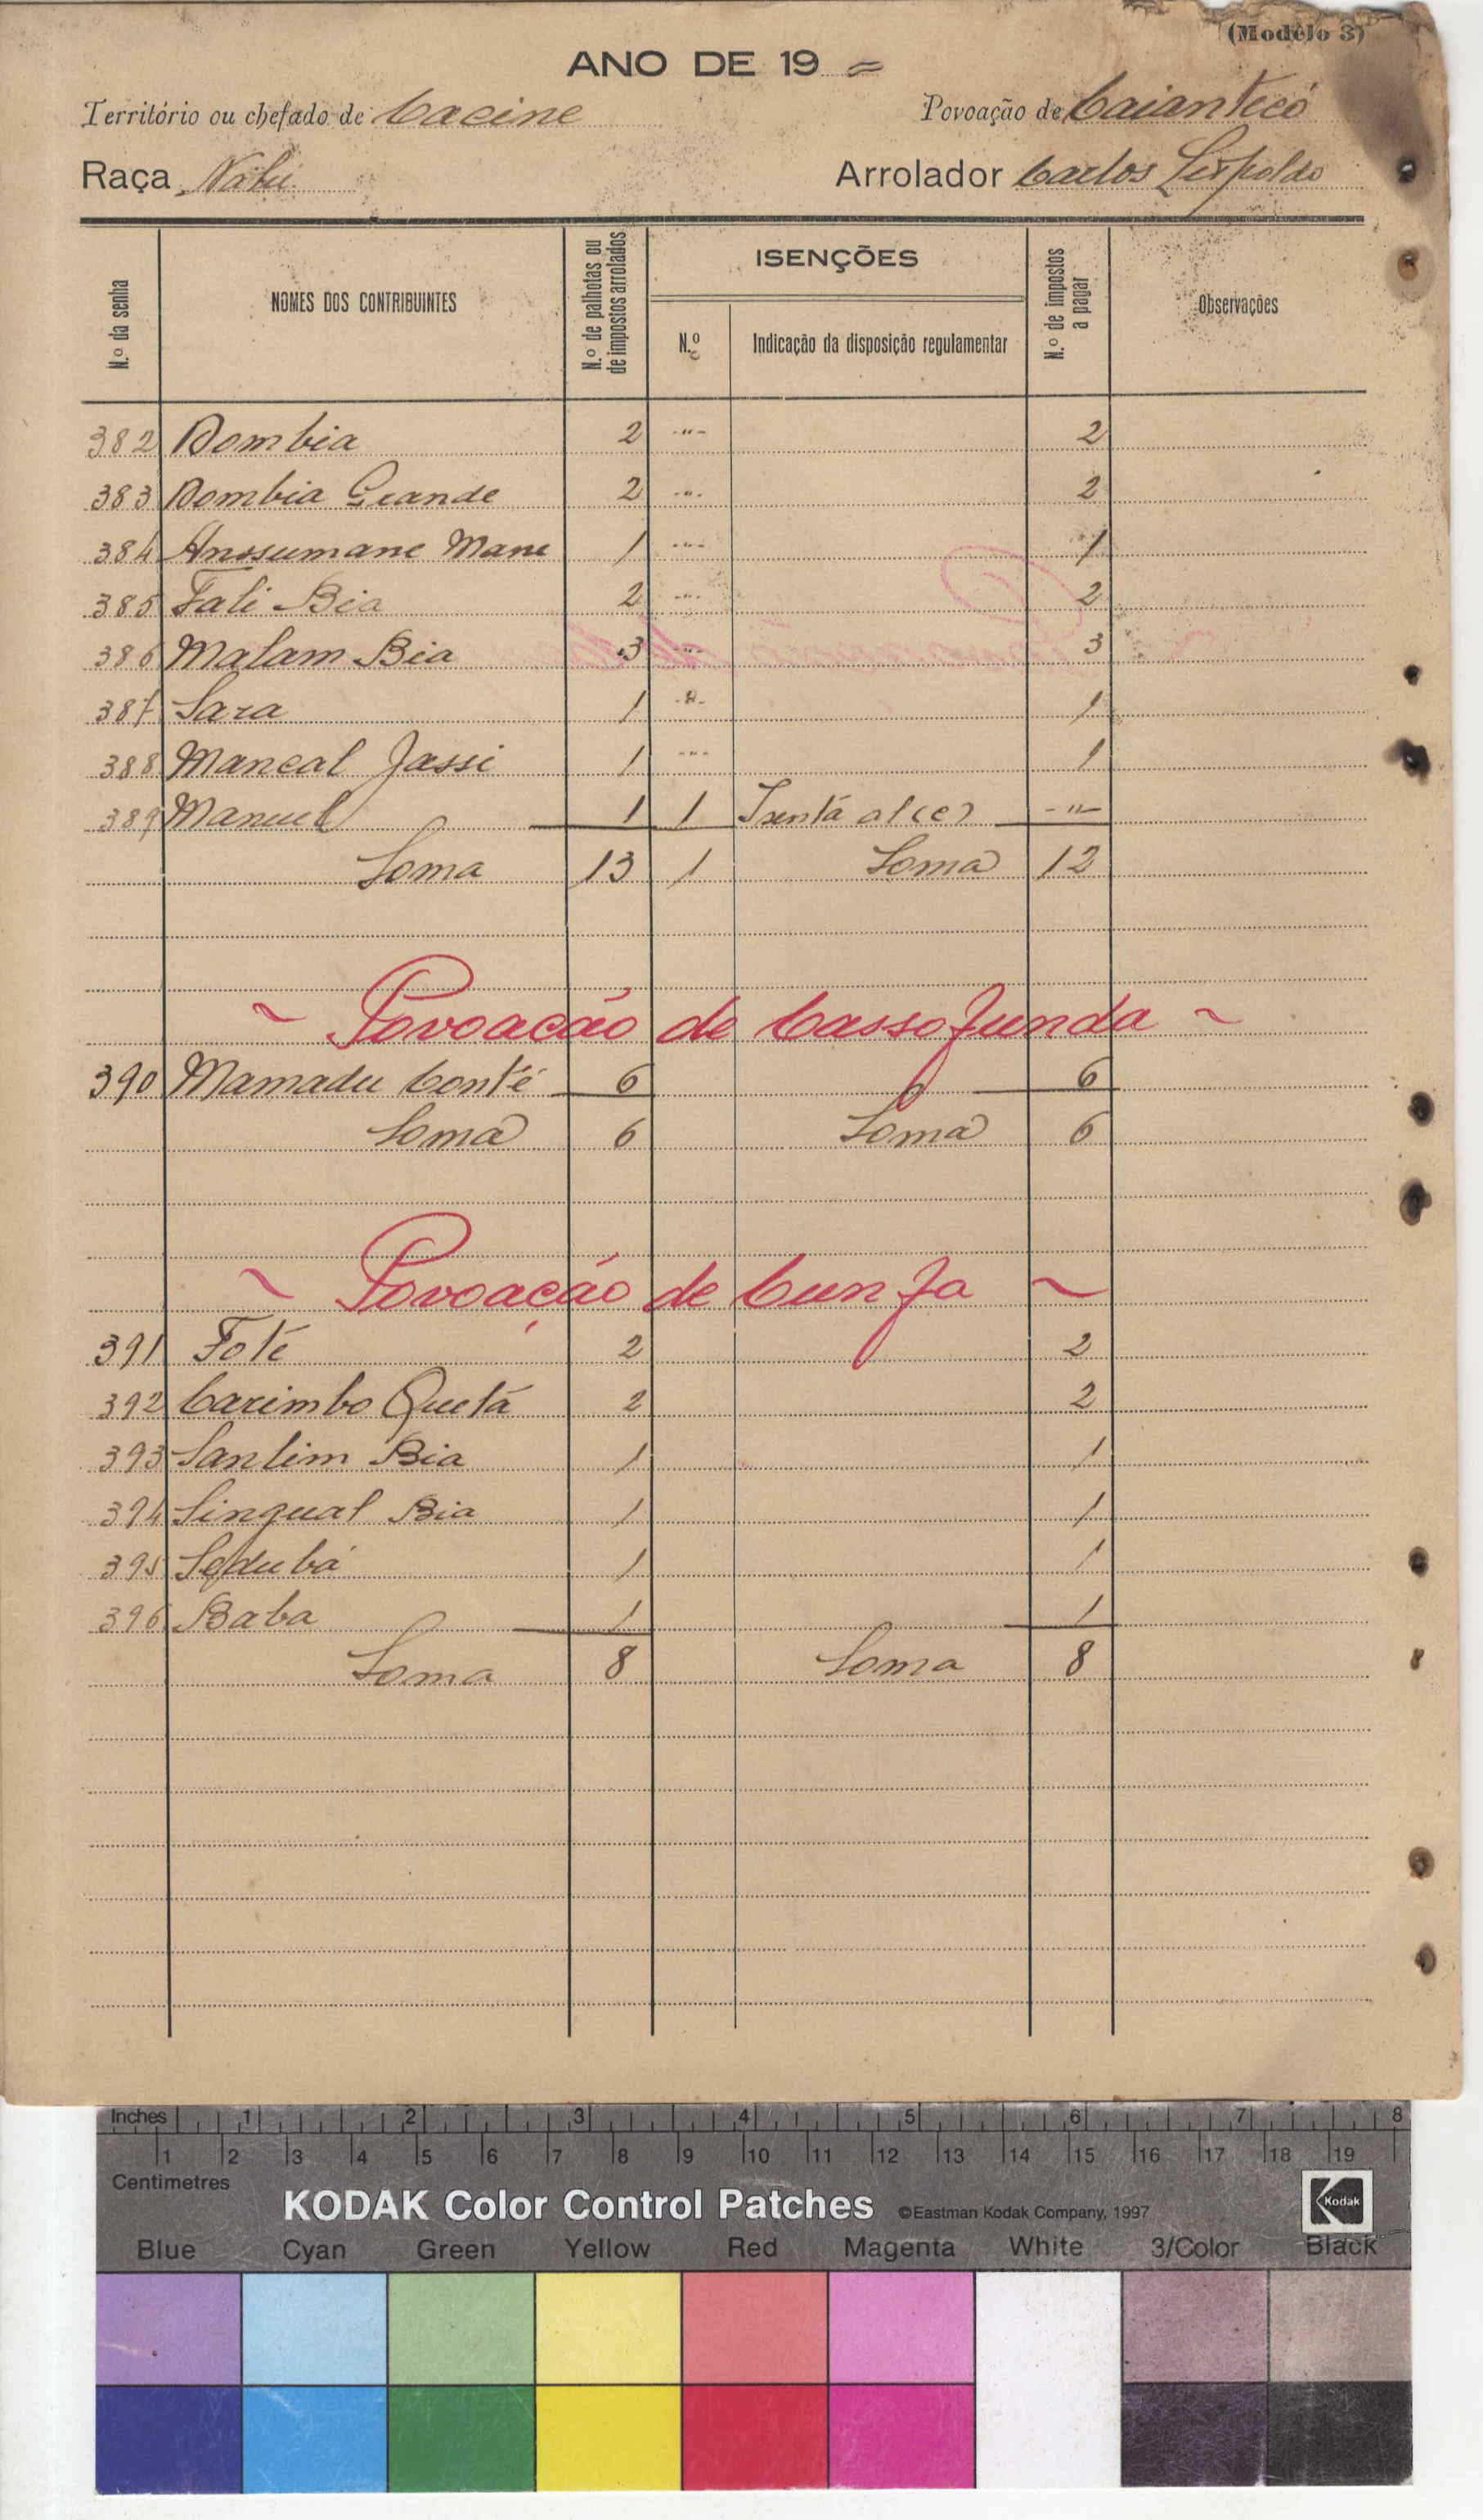 (Modêlo 3)
ANO DE 19 =
Território ou chefado de Cacine Povoação de Caiantecó
Raça Nalú Arrolador Carlos Leopoldo
N.º da senha NOMES DOS CONTRIBUINTES N.º de palhotas ou de impostos arrolados ISENÇÕES N.º Indicação da disposição regulamentar N.º de impostos a pagar Observações
382 Dombia 2 -"- 2
383 Dombia Grande 2 -"- 2
384 Anssumane Mane 1 -"- 1
385 Fali Bia 2 -"- 2
386 Malam Bia 3 -"- 3
387 Sara 1 -"- 1
388 Mancal Jassi 1 -"- 1
389 Manuel 1 1 -"-
Soma 13 1 Soma 12
~ Povoacão de Cassofunda ~
390 Mamadu Conté 6 6
Soma 6 Soma 6
~ Povoação de Cunfa ~
391 Foté 2 2
392 Carimbo Quetá 2 2
393 Sanlim Bia 1 1
394 Singual Bia 1 1
395 1 1
396 Baba 1 1
Soma 8 Soma 8
Inches 1 2 3 4 5 6 7 8
1 2 3 4 5 6 7 8 9 10 11 12 13 14 15 16 17 18 19
Centimetres
KODAK Color Control Patches ©Eastman Kodak Company, 1997 Kodak
Blue Cyan Green Yellow Red Magenta White 3/Color Black